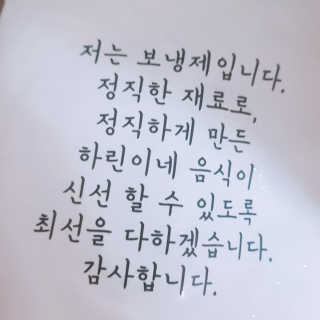 저는 보냉제입니다.
정직한 재료로,
정직하게 만든
하린이네 음식이
신선 할 수 있도록
최선을 다하겠습니다.
감사합니다.